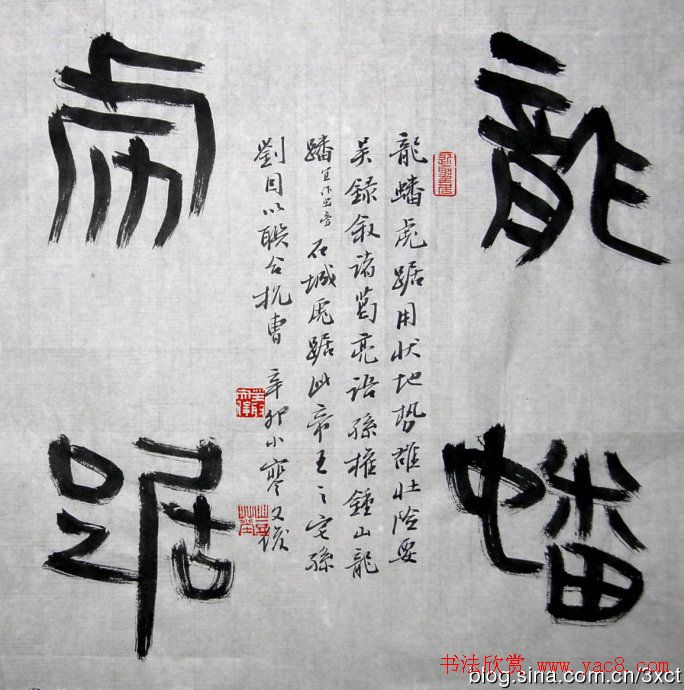 龍蟠
虎踞
龍蟠虎踞用狀地勢雄壮险要
吴録敘诸葛亮语孫權鍾山龍
蟠石城虎踞此帝王之宅孫
劉因以联合抗曹 辛卯小寒
书法欣赏 www.yac8.com
blog.sina.com.cn/3xct